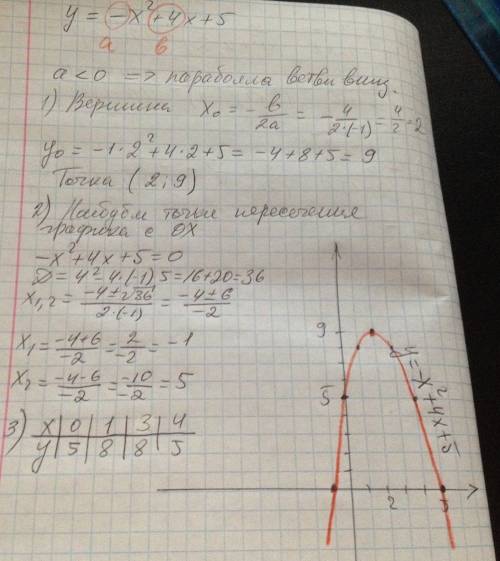 y = -x²+4x+5
a в
a<0 => парабола ветви вниз.
1) Вершина x₀ = -в/2a = -4/2·(-1) = 4/2 = 2
y₀ = -1·2²+4·2+5 = -4+8+5 = 9
Точка (2;9)
2) Найдём точки пересечения
графика с OX
-x²+4x+5=0
D = 4²-4·(-1)5 = 16+20 = 36
x₁,₂ = -4±√36/2·(-1) = -4±6/-2
x₁ = -4+6/-2 = 2/-2 = -1
x₂ = -4-6/-2 = -10/-2 = 5
3) x | 0 | 1 | 3 | 4
y | 5 | 8 | 8 | 5
9
5
2
5
y=-x²+4x+5